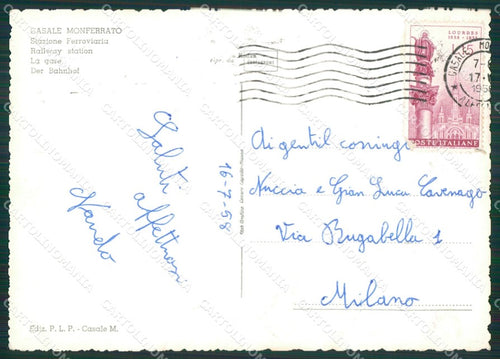 BASALE MONFERRATO
Stazione Ferroviaria
Railway station
La gare
Der Bahnhof
LOURDES
1858 - 1958
L. 15
POSTE ITALIANE
CASALE MO
17
1958
Saluti
affettuosi
Nando
16-7-58
Ai gentil coniugi
Nuccia e Gian Luca Cavenago
Via Bugabella 1
Milano
Ediz. P. L. P. - Casale M.
CARTOLINOMANIA